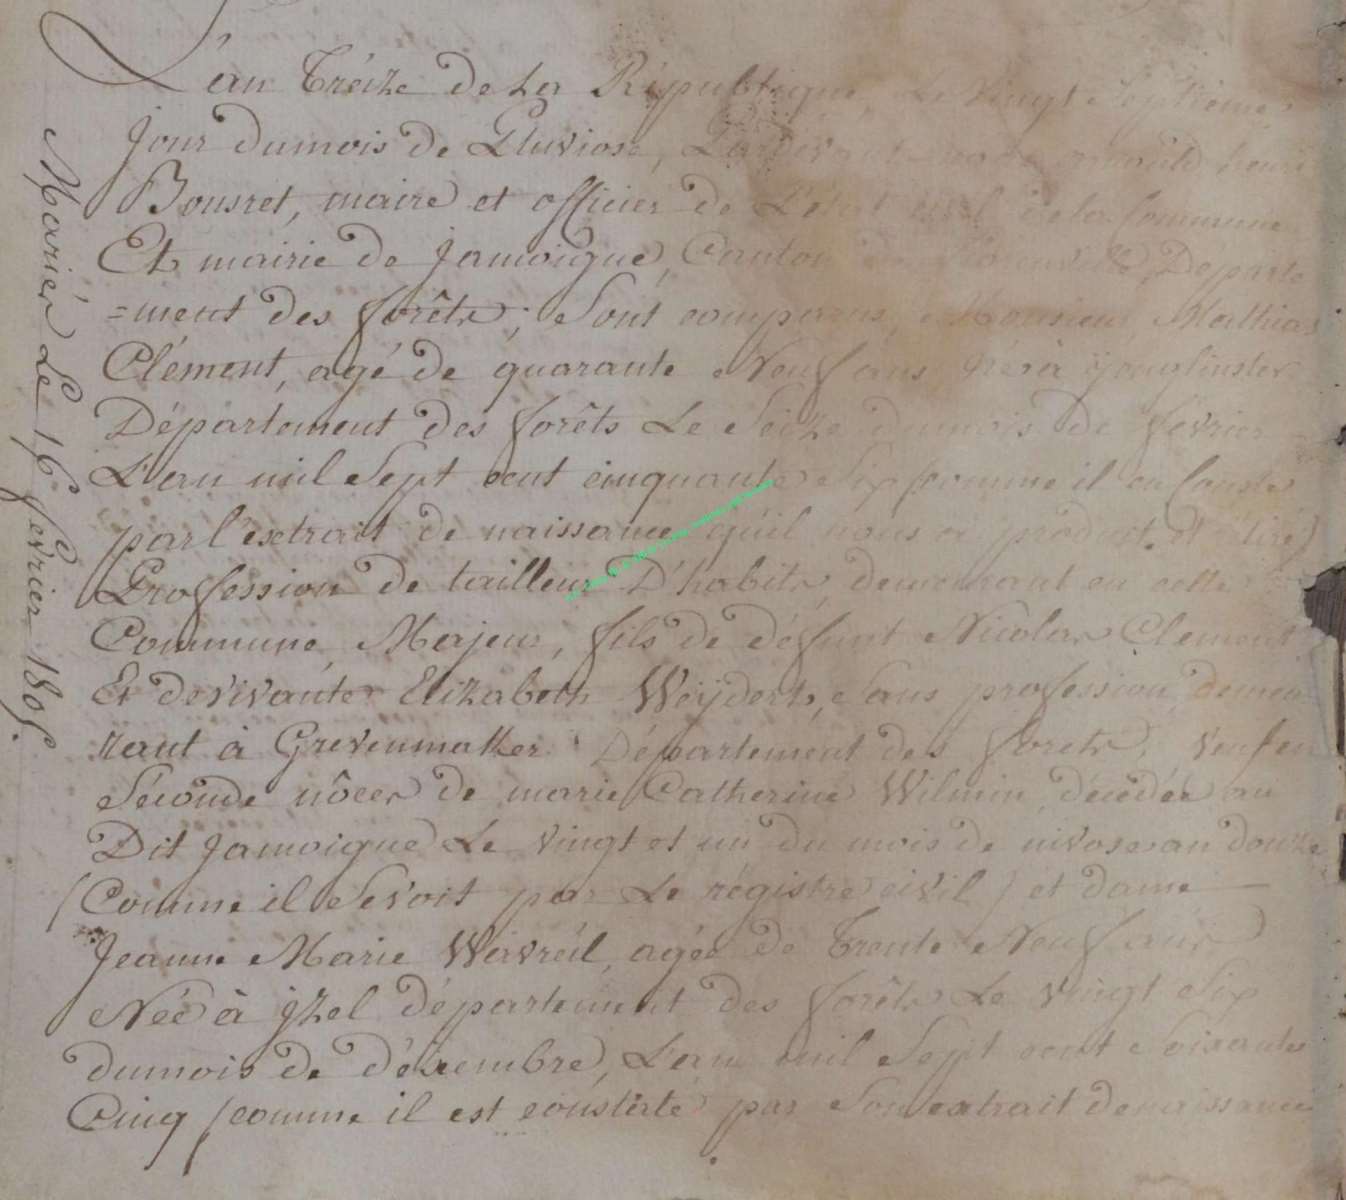 L'an Tréize de la République, le vingt Septieme
Jour dumois de Pluviose, Pardevant nous henri
Bousret, maire et officier de L'état civil dela Commune
Et mairie de Jamoigne, Canton de florenville, Departe
=ment des forêts; Sont comparus, Monsieur Mathias
Clément, agé de quarante Neuf ans, Né à
Département des forêts Le Seize dumois de fevrier
L'an mil Sept cent cinquante Six comme il en Conste
par l'extrait de naissance qu'il nous a produit,
Profession de tailleur D'habits, demeurant en cette
Commune, Majeur, fils de défunt Nicolas Clement
Et devivante Elizabeth Weijdert, Sans profession, demeu
rant à Grevenmaker Département des forets, veuf en
Séconde nôces de marie Catherine Wilmin, décédée au
Dit Jamoigne Le vingt et un du mois de nivose an douze
(Comme il Sevoit par Le régistre civil) et dame
Jeanne Marie Wavreil, agée de Trente Neuf ans
Née à jzel département des forêts Le vingt Six
dumois de décembre, L'an mil Sept cent Soixante
Cinq (comme il est constaté par Son extrait denaissance
Mariés Le 16 fevrier 1805.